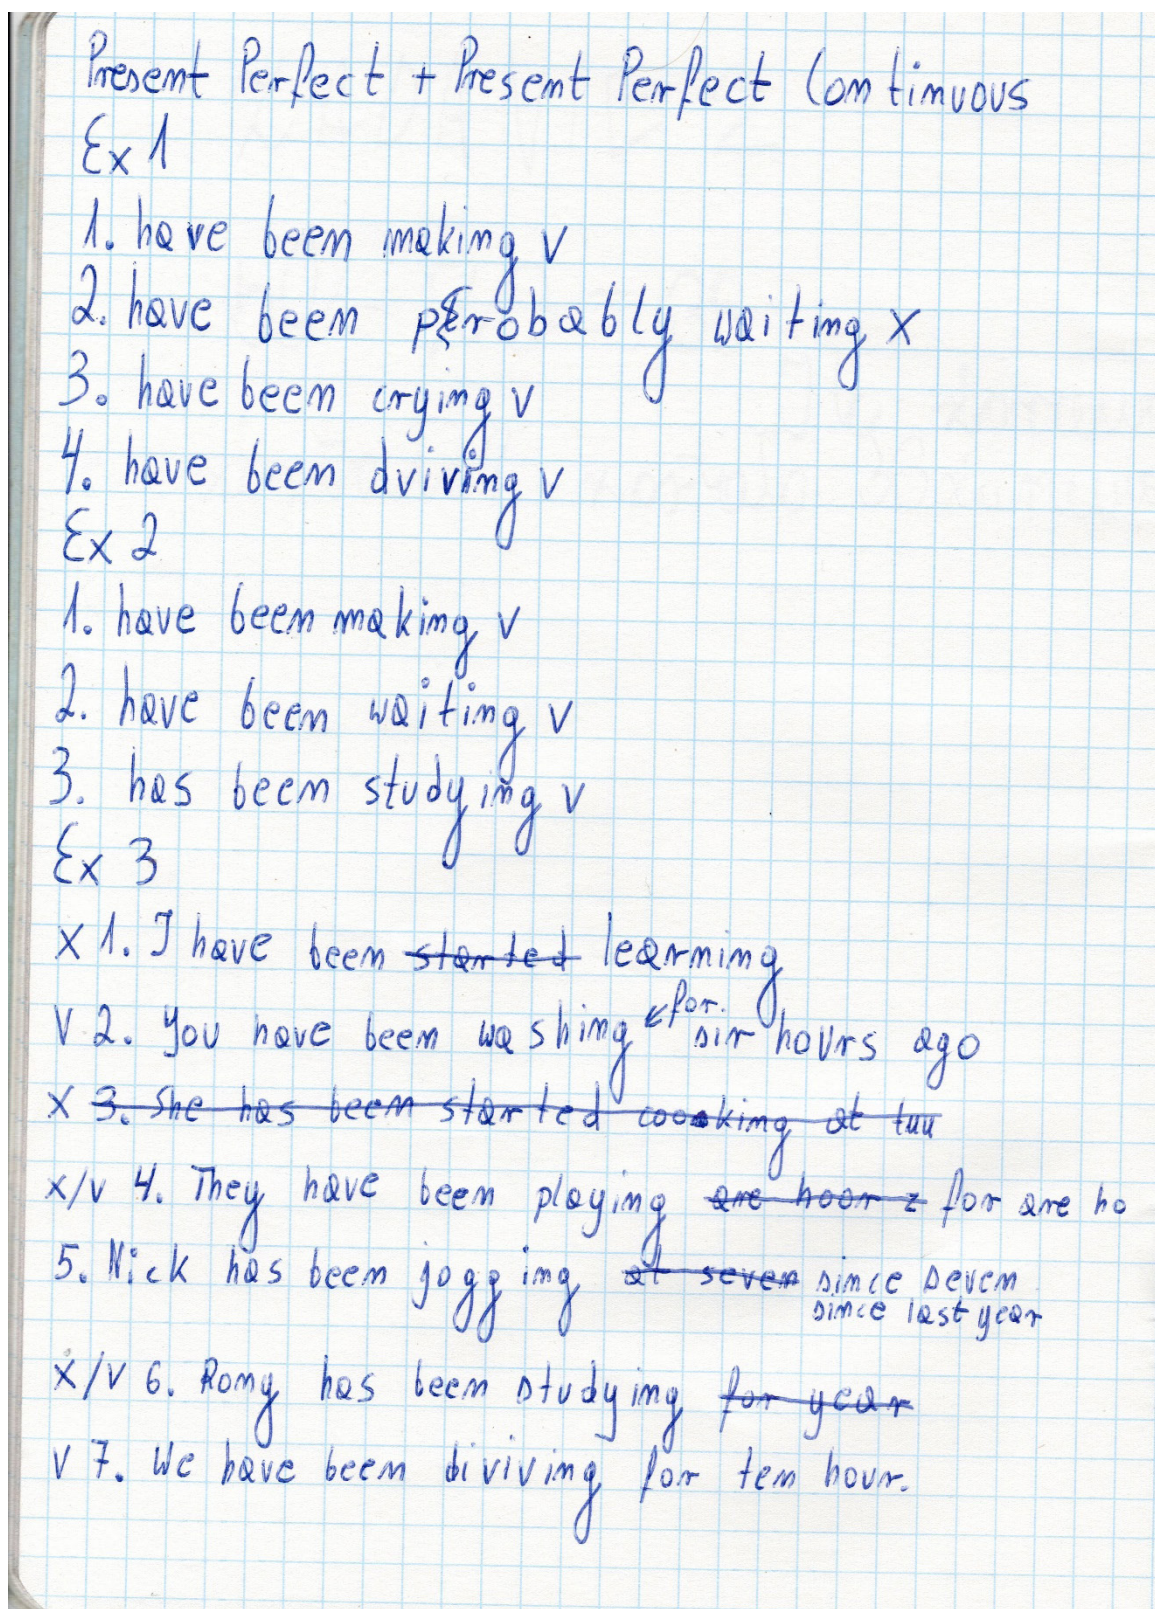 Present Perfect + Present Perfect Continuous
Ex 1
1. have been making v
2. have been probably waiting x
3. have been crying v
4. have been dviving v
Ex 2
1. have been making v
2. have been waiting v
3. has been studying v
Ex 3
x 1. I have been started learning
for.
v 2. You have been washing hours ago
x 3. She has been started cooking at
x/v 4. They have been playing are hoor for are ho
5. Nick has been jogging at seven since seven
since last year
x/v 6. Romy has been studying for year
v 7. We have been diviving for ten hour.